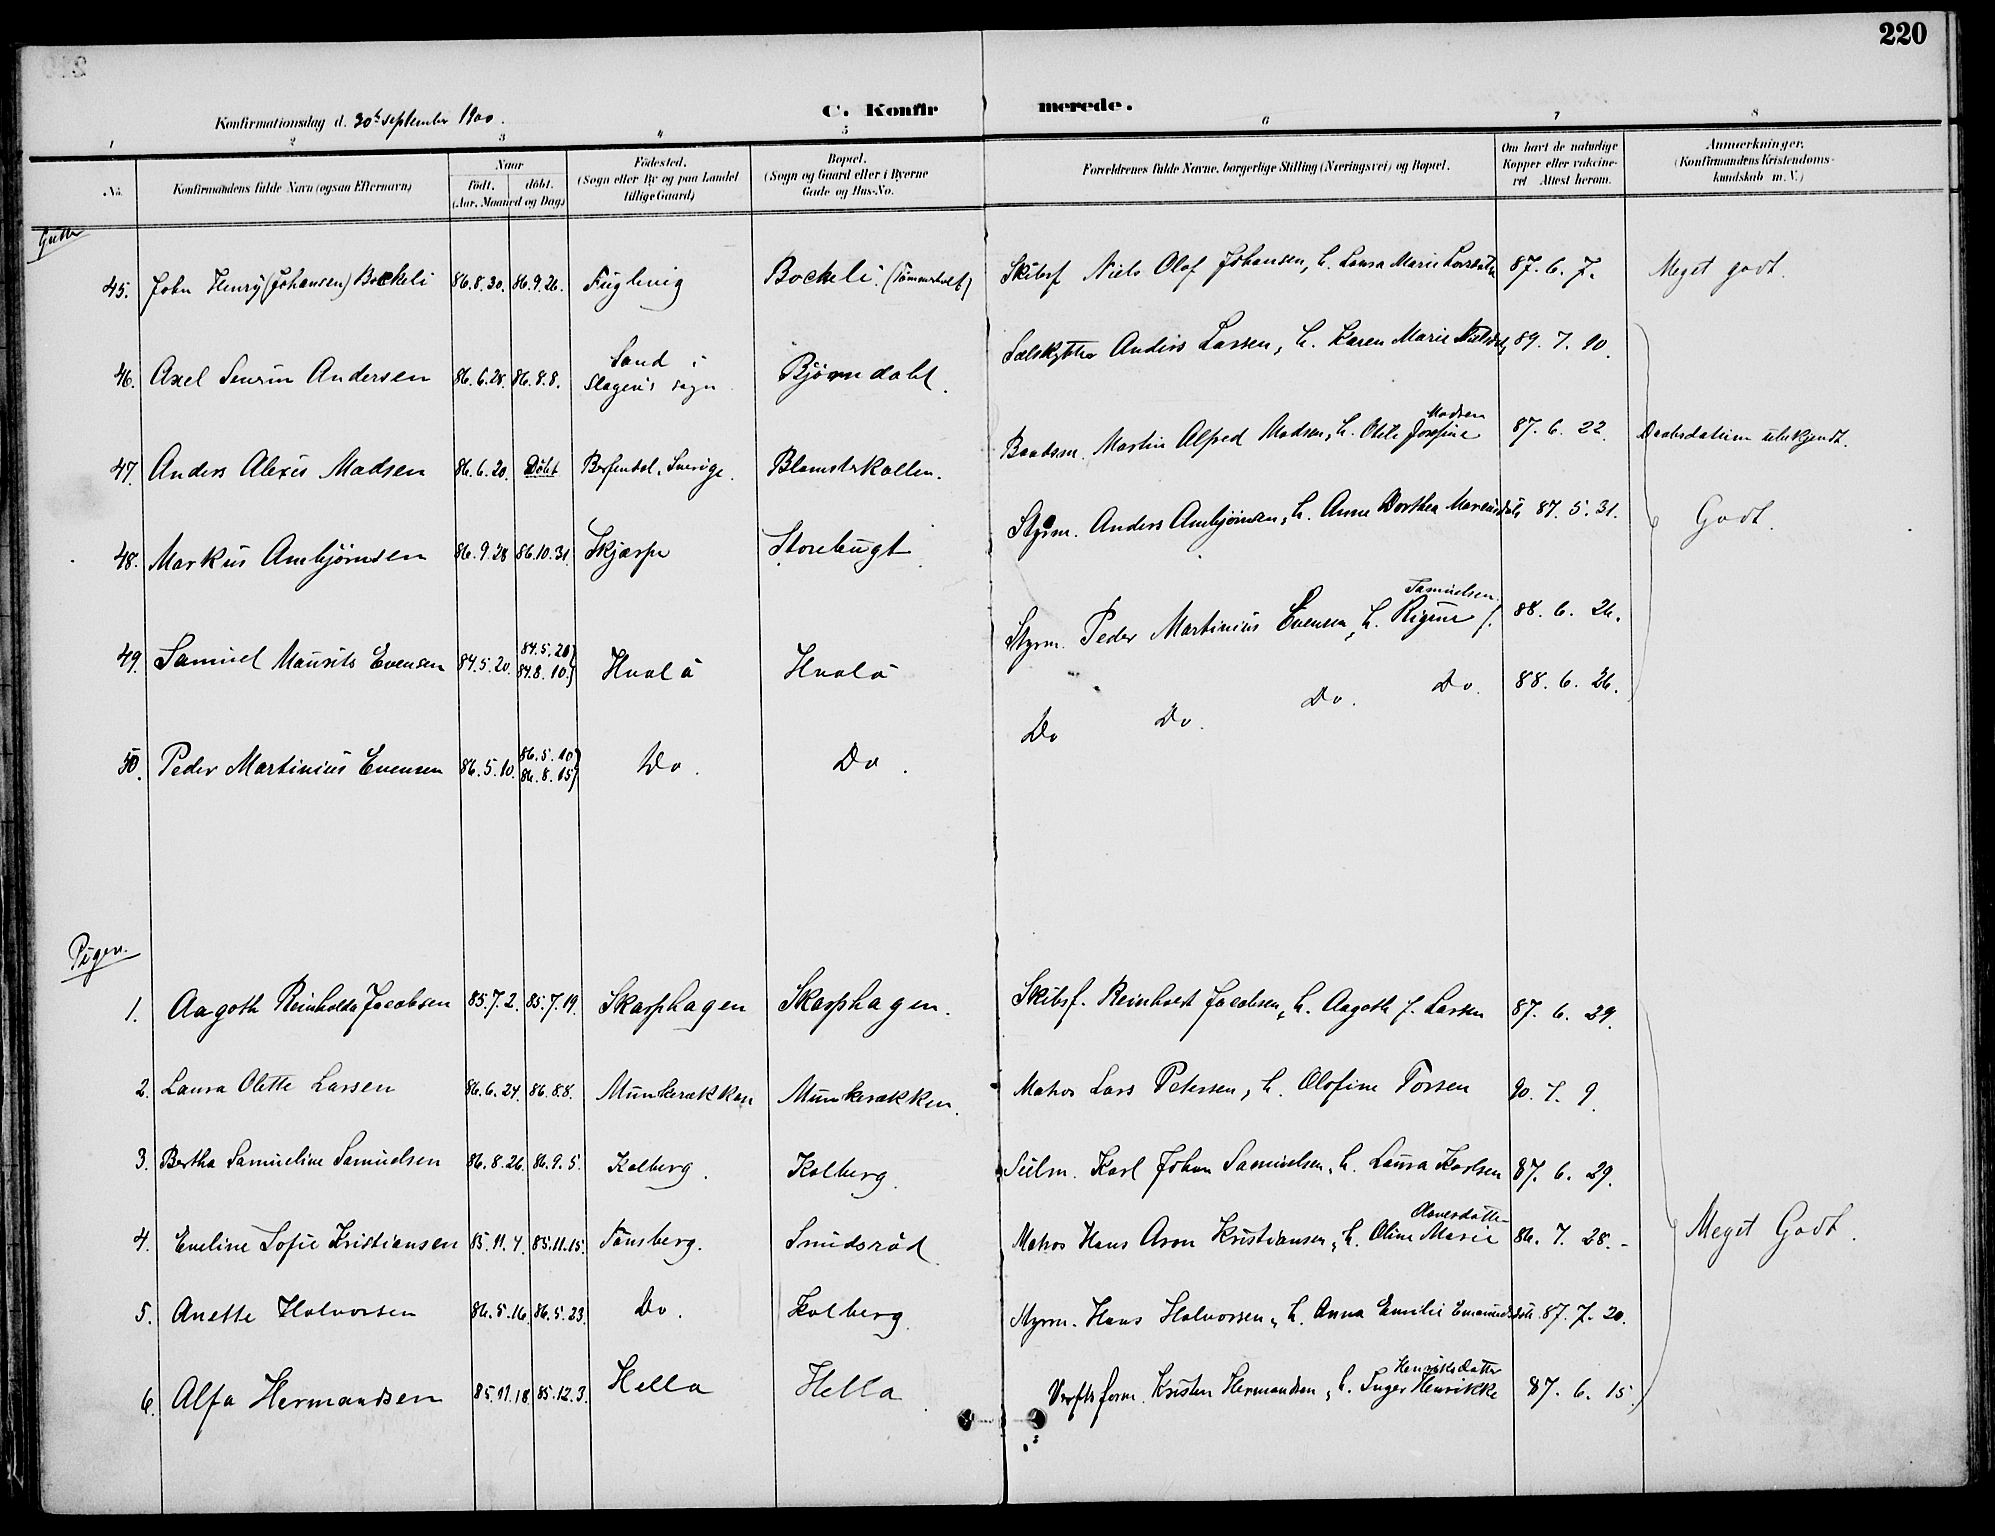 220
Konfirmationsdag d. 30te september 1900. C. Konfirmerede.
1 2 3 4 5 6 7 8
No. Konfirmandens fulde Navn (ogsaa Efternavn) Naar født, døbt. (Aar, Maaned og Dag) Fødested. (Sogn eller By og paa Landet tillige Gaard) Bopæl. (Sogn og Gaard eller i Byerne Gade og Hus-No. Forældrenes fulde Navne, borgerlige Stilling (Næringsvei) og Bopæl. Om havt de naturlige Kopper eller vakcineret Attest herom. Anmærkninger. (Konfirmandens Kristendomskundskab m. V.)
Gutter
45. John Henry (Johansen) Bockeli 86.8.30. 86.9.26. Fuglevig Bockeli. Skibsf Niels Olaf Johansen, h. Laura Marie 87. 6. 7. Meget godt.
46. Axel Senrin Andersen 86.6.28. 86.8.8. Sand i Slagens sogn Bjørndahl. Sælskytter Anders Larsen, h. Karen Marie 89. 7. 10.
47. Anders Alexis Madsen 86.6.20. Døbt Sverige. Blomsterkollen. Baadsm. Martin Alfred Madsen, h. Josefine Madsen 87. 6. 22. Daabsdatum ubekjendt.
48. Markus Ambjørnsen 86.9.28 86.10.31. Skjærpe Storebugt. Styrm. Anders Ambjørnsen, h. Anne Dorthea 87. 5. 31. Godt.
49. Samuel Maurits Evensen 84.5.20. 84.5.20) 84.8.10) Hvalø Hvalø Styrm. Peder Martinius Evensen, h. Rigine f. Samuelsen. 88. 6. 26.
50. Peder Martinius Evensen 86.5.10. 86.5.10) 86.8.15) Do. Do. Do Do. Do. Do. 88. 6. 26.
Piger.
1. Aagoth Reinholda Jacobsen 85.7.2. 85.7.19. Skarphagen Skarphagen. Skibsf. Reinholdt Jacobsen, h. Aagoth f. Larsen 87. 6. 29.
2. Laura Olette Larsen 86.6.24. 86.8.8. Munkerækken Munkerækken. Matros Lars Petersen, h. Olofine Torsen 90. 7. 9.
3. Bertha Samueline Samuelsen 86.8.26. 86.9.5. Kolberg. Kolberg. Karl Johan Samuelsen, h. Laura Karlsen 87. 6. 29.
4. Eveline Sofie Kristiansen 85.11.4. 85.11.15. Tønsberg. Smidsrød. Matros Hans Aron Kristiansen, h. Oline Marie Olavesdatter 86. 7. 28. Meget Godt.
5. Anette Halvorsen 86.5.16. 86.5.23. Do. Kolberg. Hans Halvorsen, h. Anna Emilie 87. 7. 20.
6. Alfa Hermandsen 85.11.18. 85.12.3. Hella Hella. Verftsform. Kristen Hermandsen, h. Inger Henrikke Henriksdatter 87. 6. 15.